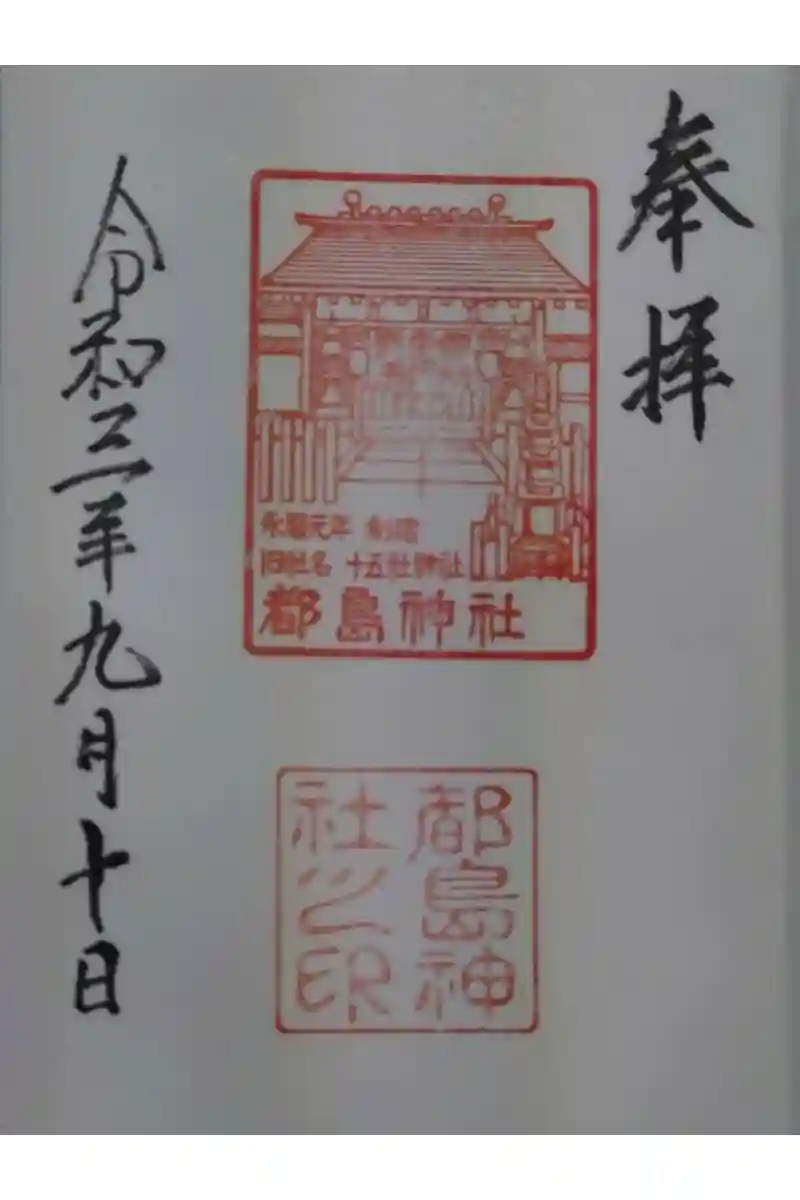 奉拝
永暦元年 創建
旧社名 十五社神社
都島神社
都島神
社之印
令和三年九月十日